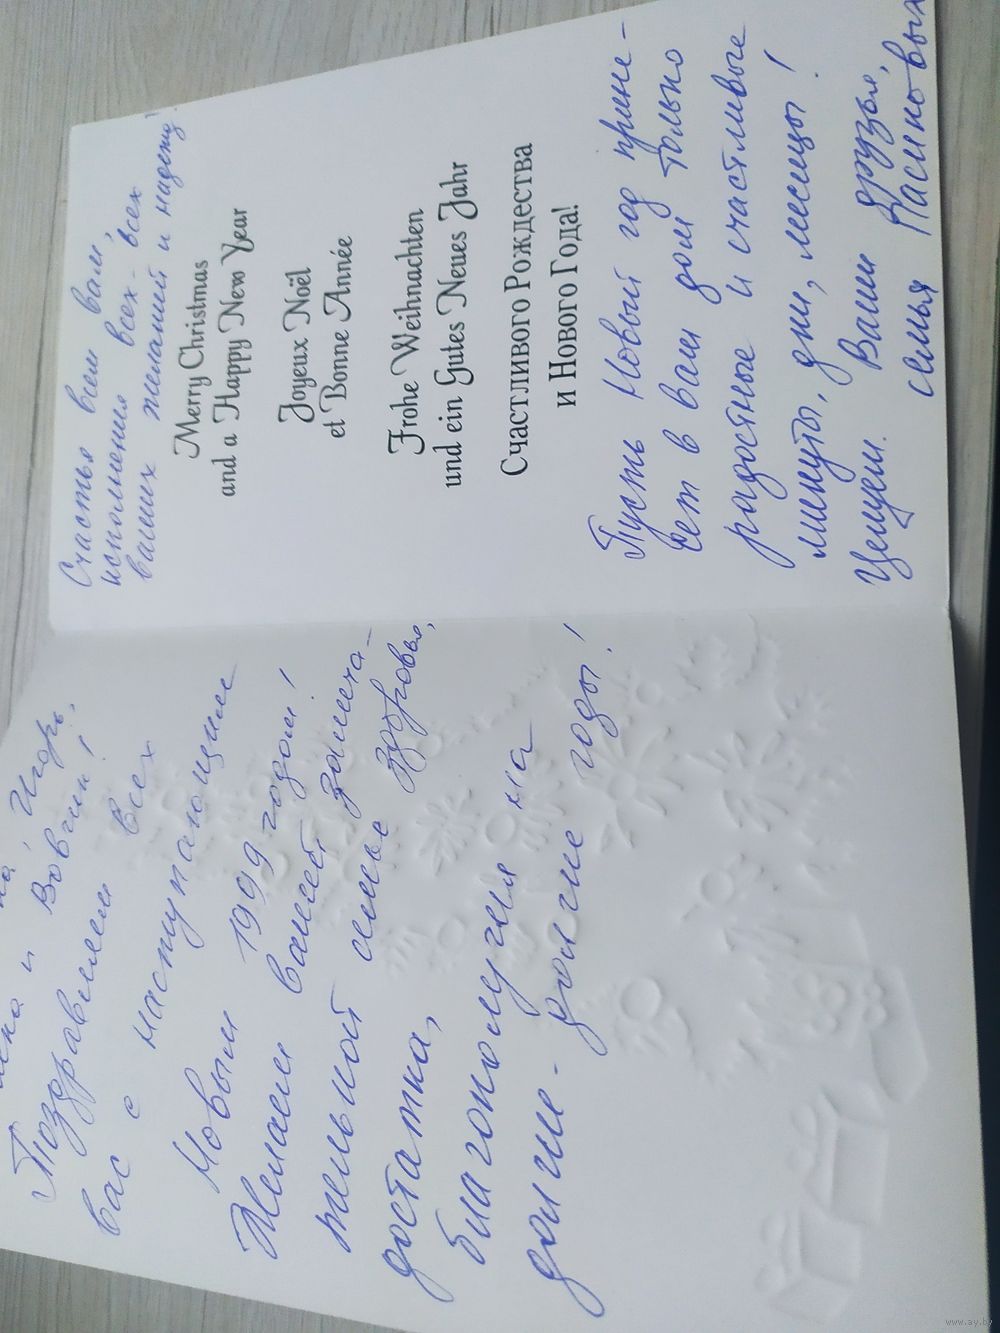 Игорь,
и Вовчик!
Поздравляем всех
вас с наступающим
Новым 1999 годом!
Желаем вашей замеча-
тельной семье здоровья,
достатка,
благополучия на
долгие-долгие годы!
Счастья всем вам,
исполнения всех-всех
ваших желаний и надежд!
Merry Christmas
and a Happy New Year
Joyeux Noël
et Bonne Année
Frohe Weihnachten
und ein Gutes Neues Jahr
Счастливого Рождества
и Нового Года!
Пусть Новый год прине-
сет в ваш дом только
радостные и счастливые
минуты, дни, месяцы!
Целуем. Ваши друзья,
семья
www.ay.by